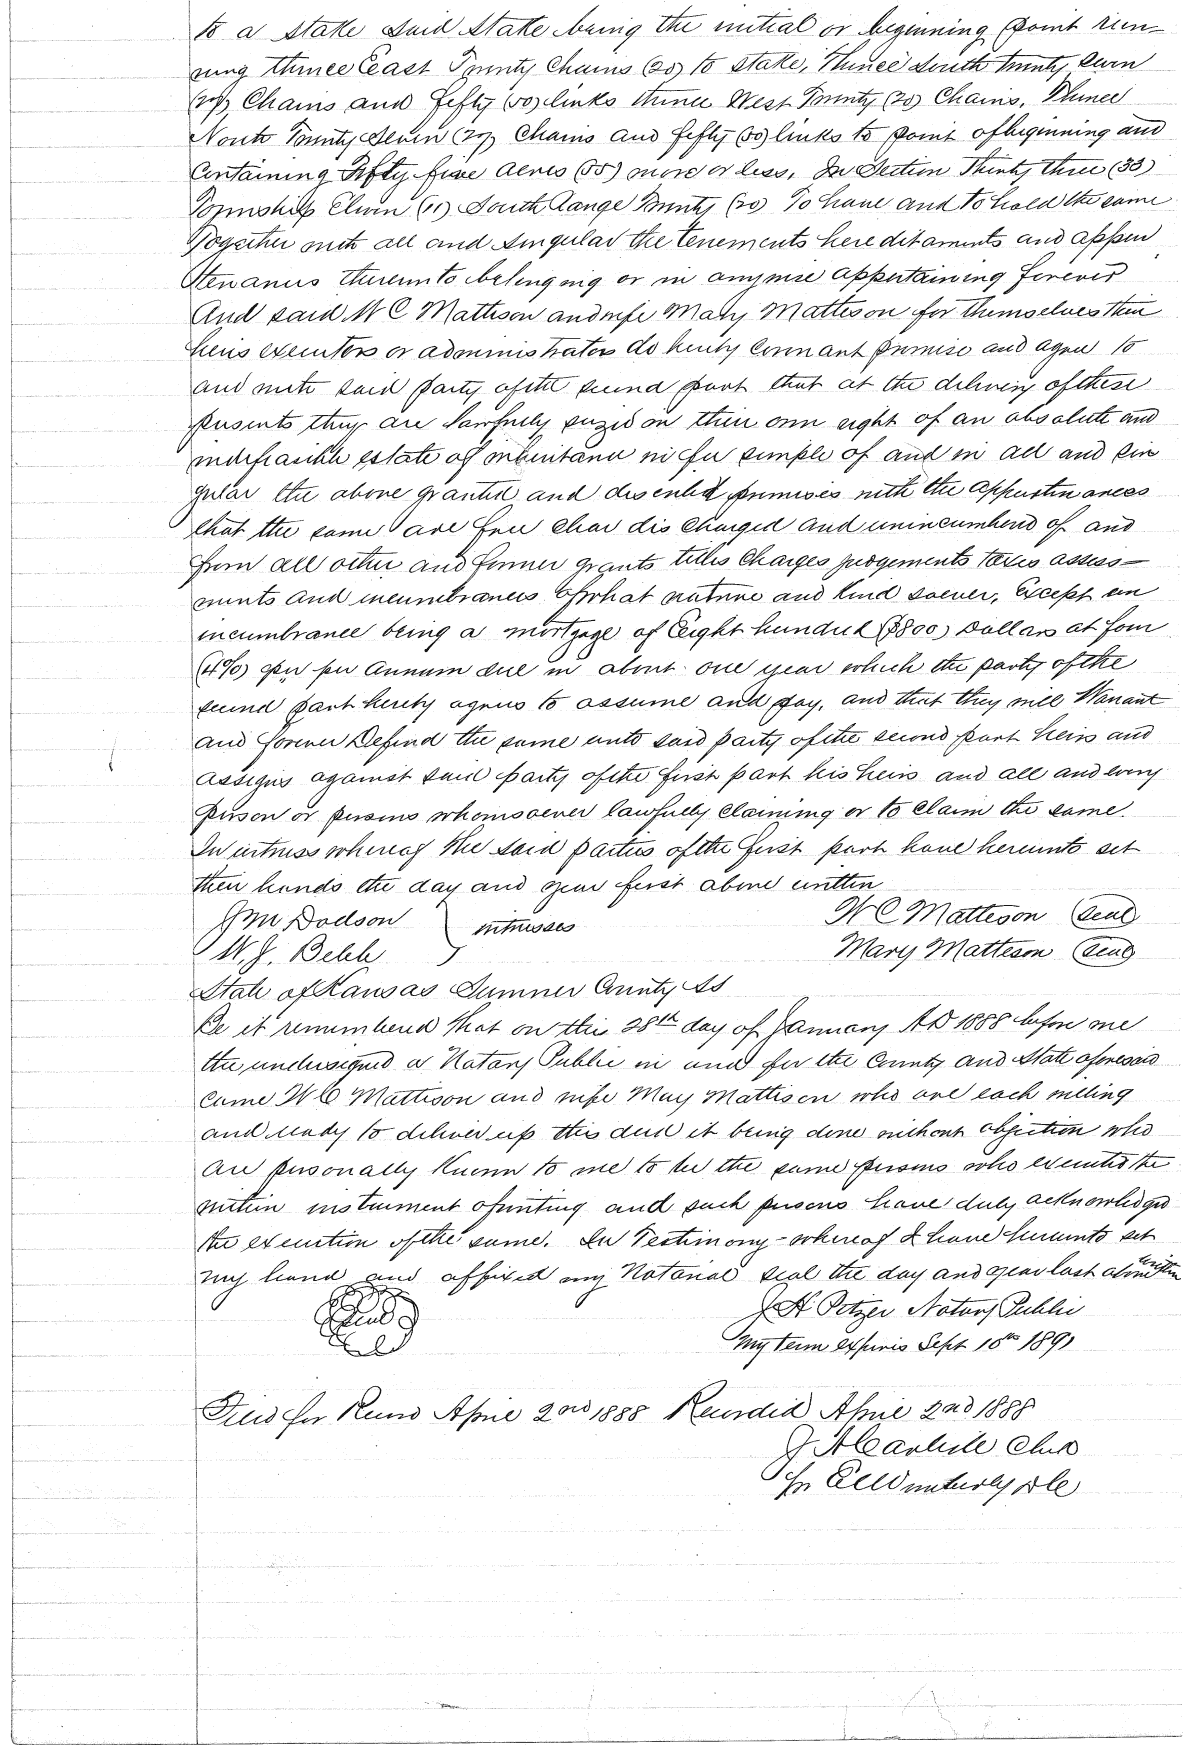 to a stake said stake being the initial or beginning point run-
ning thence East Twenty Chains (20) to stake, Thence South twenty seven
(27) Chains and fifty (50) links thence West Twenty (20) Chains, Thence
North Twenty Seven (27) Chains and fifty (50) links to point of beginning and
Containing Fifty five acres (55) more or less, In Section Thirty three (33)
Township Eleven (11) South Range Twenty (20) To have and to hold the same
Together with all and singular the tenements hereditaments and appur
tenances thereunto belonging or in anywise appertaining forever
And said W C Mattison and wife Mary Matteson for themselves their
heirs executors or administrators do hereby covenant promise and agree to
and with said party of the second part that at the delivery of these
presents they are lawfully seized on their own right of an absolute and
indefeasible estate of inheritance in fee simple of and in all and sin
gular the above granted and described premises with the appurtinances
that the same are free clear discharged and unincumbered of and
from all other and former grants titles Charges judgements taxes assess-
ments and incumbrances of what nature and kind soever, Except an
incumbrance being a mortgage of Eight hundred ($800) Dollars at four
(4%) per per Annum due in about one year which the party of the
second part hereby agrees to assume and pay, and that they will Warrant
and forever Defend the same unto said party of the second part heirs and
assigns against said party of the first part his heirs and all and every
person or persons whomsoever lawfully claiming or to claim the same.
In witness whereof the said parties of the first part have hereunto set
their hands the day and year first above written
Jm Dodson } witnesses W C Matteson (Seal)
W. J. Bebb Mary Matteson (Seal)
State of Kansas Sumner County SS
Be it remembered that on this 28th day of January AD 1888 before me
the undersigned a Notary Public in and for the County and State aforesaid
came W C Mattison and wife May Mattison who are each willing
and ready to deliver up this deed it being done without objection who
are personally known to me to be the same persons who executed the
within instrument of writing and such persons have duly acknowledged
the execution of the same. In Testimony whereof I have hereunto set
my hand and affixed my Notarial seal the day and year last above written
J H Petzer Notary Public
Seal
My term expires Sept 10th 1891
Filed for Record April 2nd 1888 Recorded April 2nd 1888
J A Carlisle Clerk